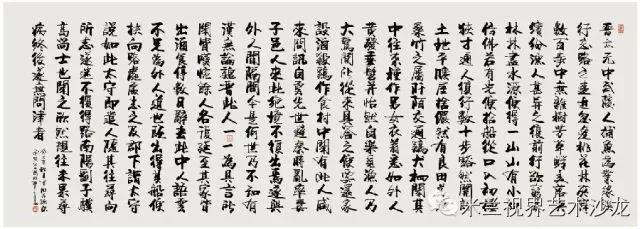 晋太元中武陵人捕魚為業緣溪
行忘路之遠近忽逢桃花林夾岸
數百步中無雜樹芳草鮮美落英
繽紛漁人甚異之復前行欲窮其
林林盡水源便得一山山有小口
仿佛若有光便捨船從口入初極
狹才通人復行數十步豁然開朗
土地平曠屋舍儼然有良田美池
桑竹之屬阡陌交通雞犬相聞其
中往來種作男女衣著悉如外人
黃髮垂髫并怡然自樂見漁人乃
大驚問所從來具答之便要還家
設酒殺雞作食村中聞有此人咸
來問訊自云先世避秦時亂率妻
子邑人來此絕境不復出焉遂與
外人間隔問今是何世乃不知有
漢無論魏晉此人一一為具言所
聞皆嘆惋餘人各復延至其家皆
出酒食停數日辭去此中人語雲
不足為外人道也既出得其船便
扶向路處處志之及郡下詣太守
說如此太守即遣人隨其往尋向
所志遂迷不復得路南陽劉子驥
高尚士也聞之欣然規往未果尋
病終後遂無問津者
米兰视界艺术沙龙